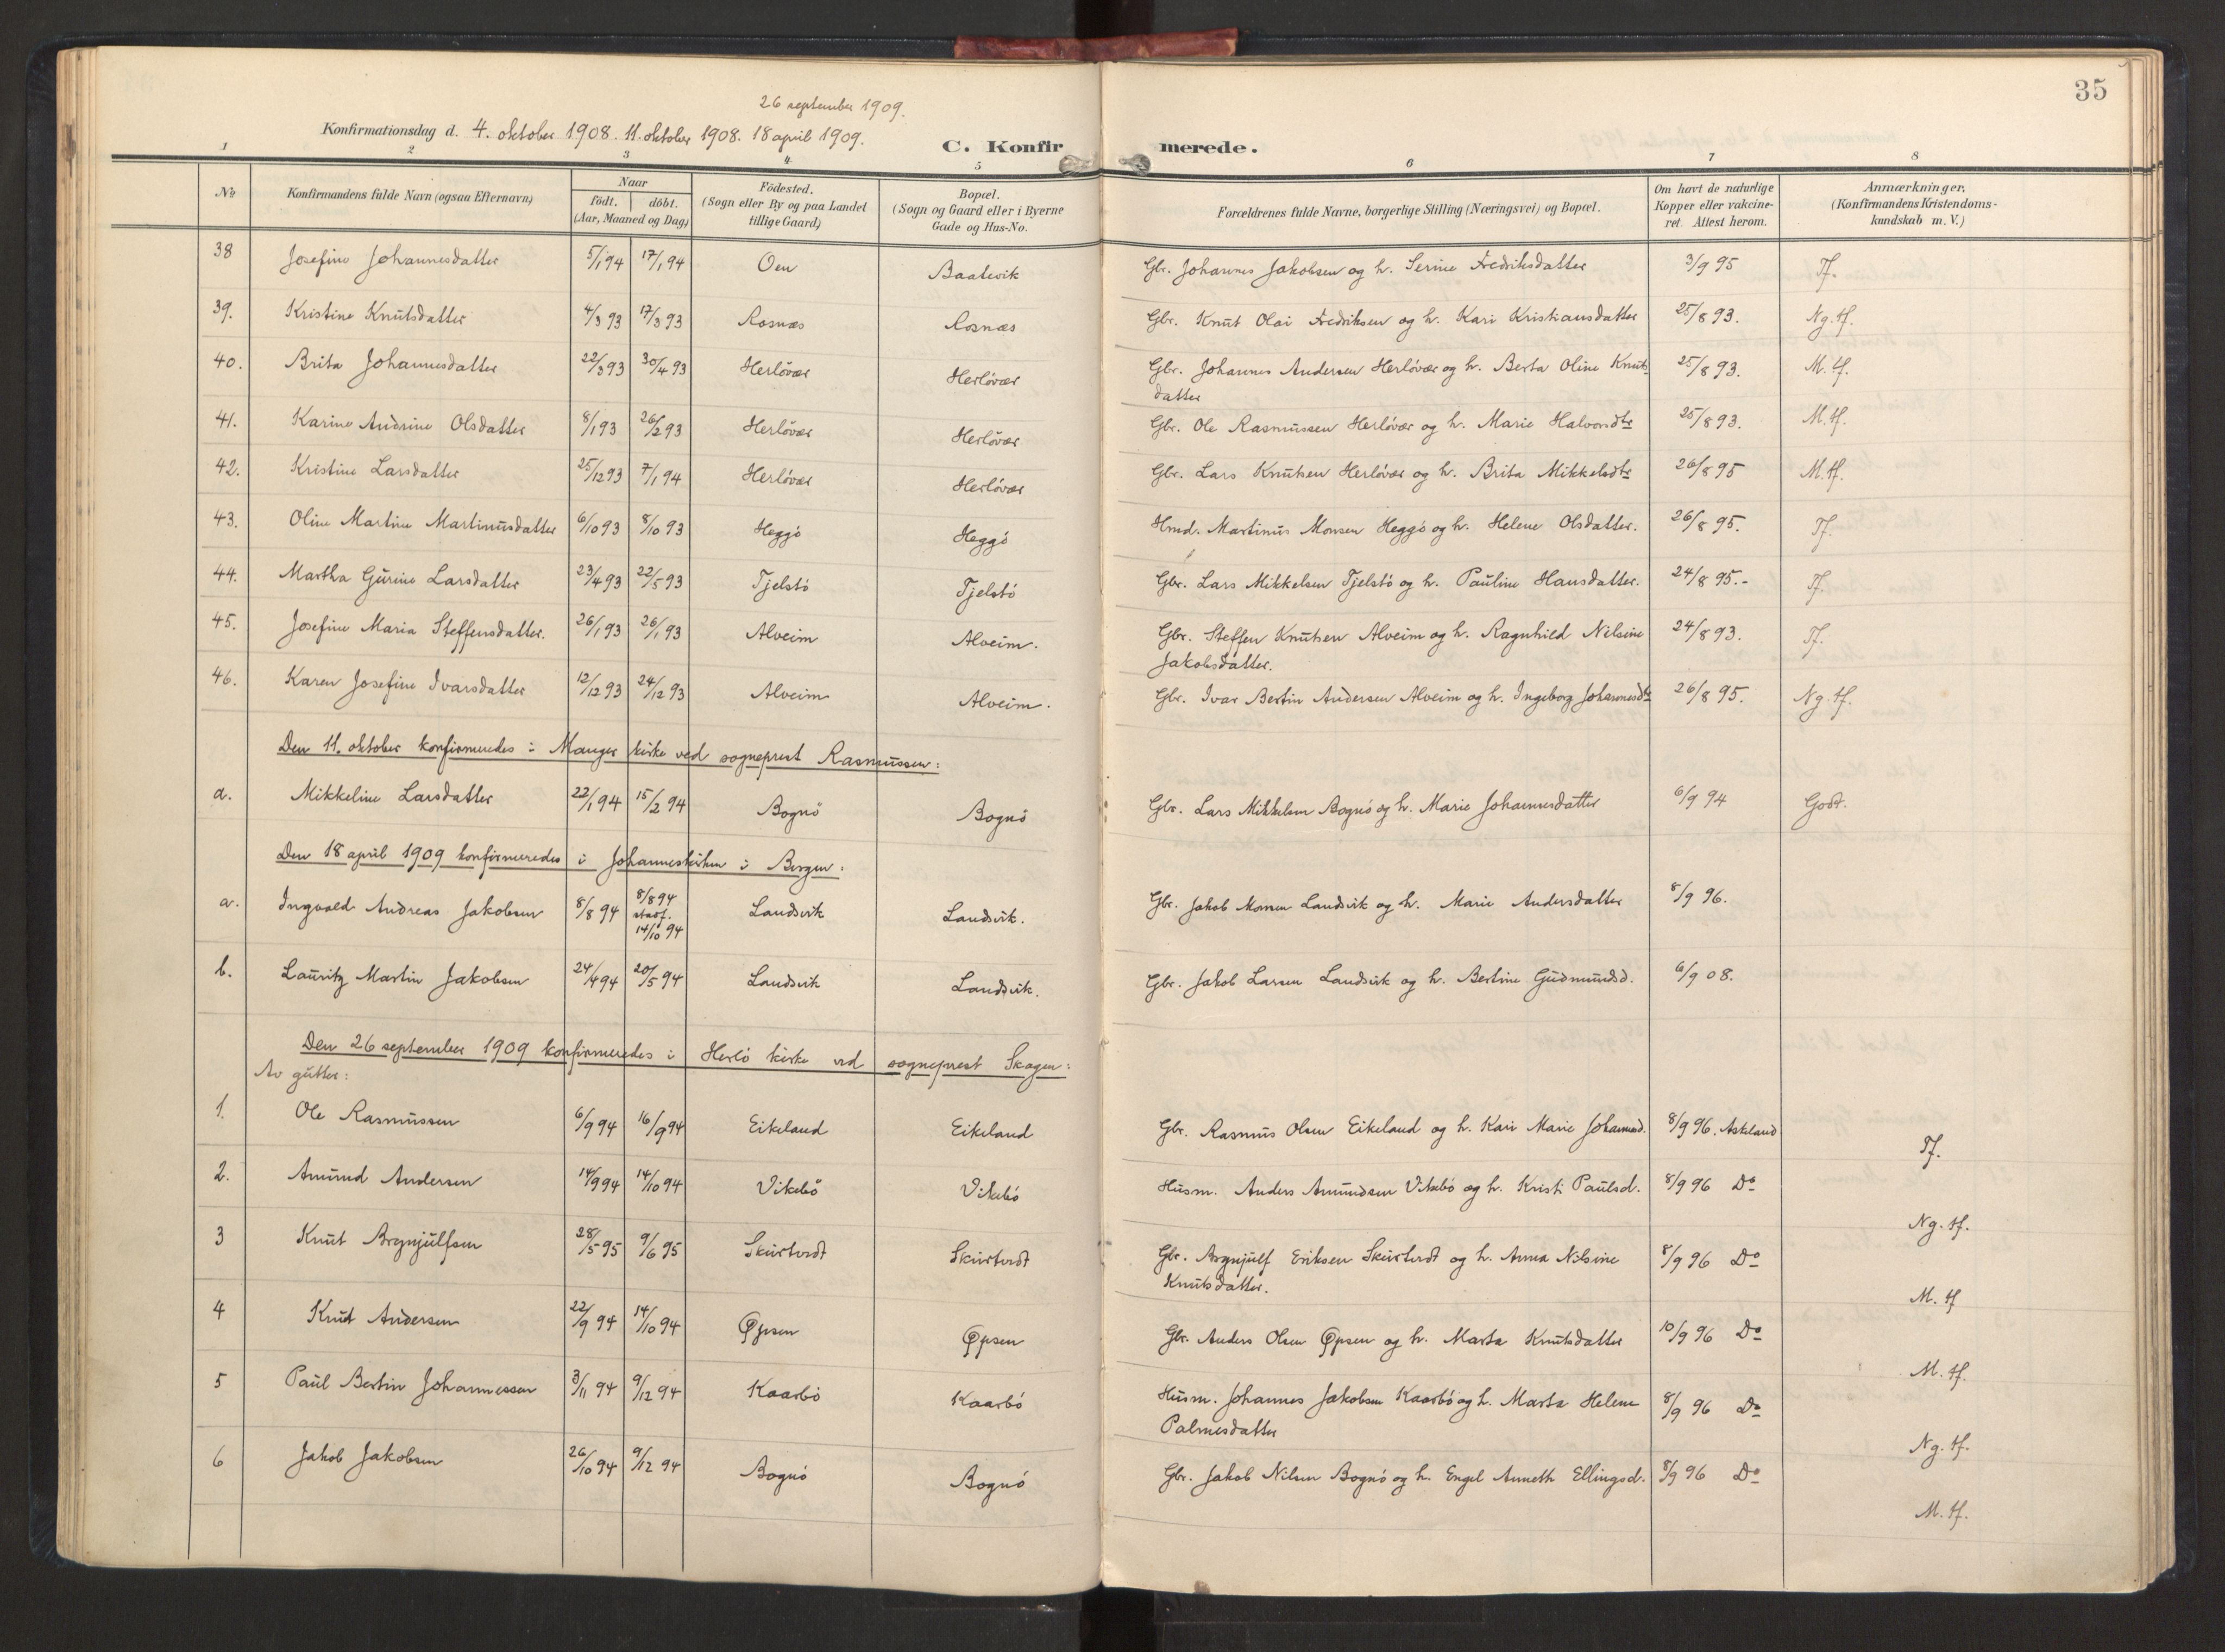 35
26 september 1909.
Konfirmationsdag d. 4. oktober 1908. 11. oktober 1908. 18 april 1909.
C. Konfirmerede.
1 2 3 4 5 6 7 8
No
Konfirmandens fulde Navn (ogsaa Efternavn)
Naar
födt. döbt.
(Aar, Maaned og Dag)
Födested.
(Sogn eller By og paa Landet
tillige Gaard)
Bopæl.
(Sogn og Gaard eller i Byerne
Gade og Hus-No.
Forældrenes fulde Navne, borgerlige Stilling (Næringsvei) og Bopæl.
Om havt de naturlige
Kopper eller vakcine-
ret. Attest herom.
Anmærkninger,
(Konfirmandens Kristendoms-
kundskab m. V.)
38 Josefine Johannesdatter 5/1 94 17/1 94 Oen Baatevik Gbr. Johannes Jakobsen og h. Serine Fredriksdatter 3/9 95 Tf.
39. Kristine Knutsdatter 4/3 93 17/3 93 Rosnæs Rosnæs Gbr. Knut Olai Fredriksen og h. Kari Kristiansdatter 25/8 93. Ng. tf.
40. Brita Johannesdatter 22/3 93 30/4 93 Herlövær Herlövær Gbr. Johannes Andersen Herlövær og h. Berta Oline Knuts-
datter 25/8 93. M. tf.
41. Karine Andrine Olsdatter 8/1 93 26/2 93 Herlövær Herlövær Gbr. Ole Rasmussen Herlövær og h. Marie Halvorsdtr 25/8 93. M. tf.
42. Kristine Larsdatter 25/12 93 7/1 94 Herlövær Herlövær Gbr. Lars Knutsen Herlövær og h. Brita Mikkelsdtr 26/8 95 M. tf.
43. Oline Martine Martinusdatter 6/10 93 8/10 93 Heggö Heggö Hmd. Martinus Monsen Heggö og h. Helene Olsdatter. 26/8 95. Tf.
44. Martha Gurine Larsdatter 23/4 93 22/5 93 Tjelstö Tjelstö Gbr. Lars Mikkelsen Tjelstö og h. Pauline Hansdatter. 24/8 95.- Tf.
45. Josefine Maria Steffensdatter. 26/1 93 26/1 93 Alveim Alveim. Gbr. Steffen Knutsen Alveim og h. Ragnhild Nilsine
Jakobsdatter. 24/8 93. Tf.
46. Karen Josefine Ivarsdatter 12/12 93 24/12 93 Alveim Alveim. Gbr. Ivar Bertin Andersen Alveim og h. Ingeborg Johannesdtr 26/8 95. Ng. tf.
Den 11. oktober konfirmeredes i Manger kirke ved sogneprest Rasmussen:
a. Mikkeline Larsdatter 22/1 94 15/2 94 Bognö Bognö Gbr. Lars Mikkelsen Bognö og h. Marie Johannesdatter 6/9 94 Godt.
Den 18 april 1909 konfirmeredes i Johanneskirken i Bergen:
a. Ingvald Andreas Jakobsen 8/8 94 8/8 94
stadf.
14/10 94 Landsvik Landsvik. Gbr. Jakob Monsen Landsvik og h. Marie Andersdatter 8/9 96.
b. Lauritz Martin Jakobsen 24/4 94 20/5 94 Landsvik Landsvik. Gbr. Jakob Larsen Landsvik og h. Bertine Gudmundsd. 6/9 08.
Den 26 september 1909 konfirmeredes i Herlö kirke ved sogneprest Skagen:
Av gutter:
1. Ole Rasmussen 6/9 94 16/9 94 Eikeland Eikeland Gbr. Rasmus Olsen Eikeland og h. Kari Marie Johannesd. 8/9 96. Askeland Tf.
2. Amund Andersen 14/9 94 14/10 94 Vikebö Vikebö Husm. Anders Amundsen Vikebö og h. Kristi Paulsd. 8/9 96 Do Ng. tf.
3 Knut Brynjulfsen 28/5 95 9/6 95 Skurtvedt Skurtvedt Gbr. Brynjulf Eriksen Skurtvedt og h. Anna Nilsine
Knutsdatter. 8/9 96 Do M. tf
4 Knut Andersen 22/9 94 14/10 94 Øpsen Øpsen Gbr. Anders Olsen Øpsen og h. Marta Knutsdatter 10/9 96 Do M. tf.
5 Paul Bertin Johannessen 3/11 94 9/12 94 Kaarbö Kaarbö Husm. Johannes Jakobsen Kaarbö og h. Marta Helene
Palmesdatter 8/9 96 Do Ng. tf.
6 Jakob Jakobsen 26/10 94 9/12 94 Bognö Bognö Gbr. Jakob Nilsen Bognö og h. Engel Anneth Ellingsd. 8/9 96 Do M. tf.